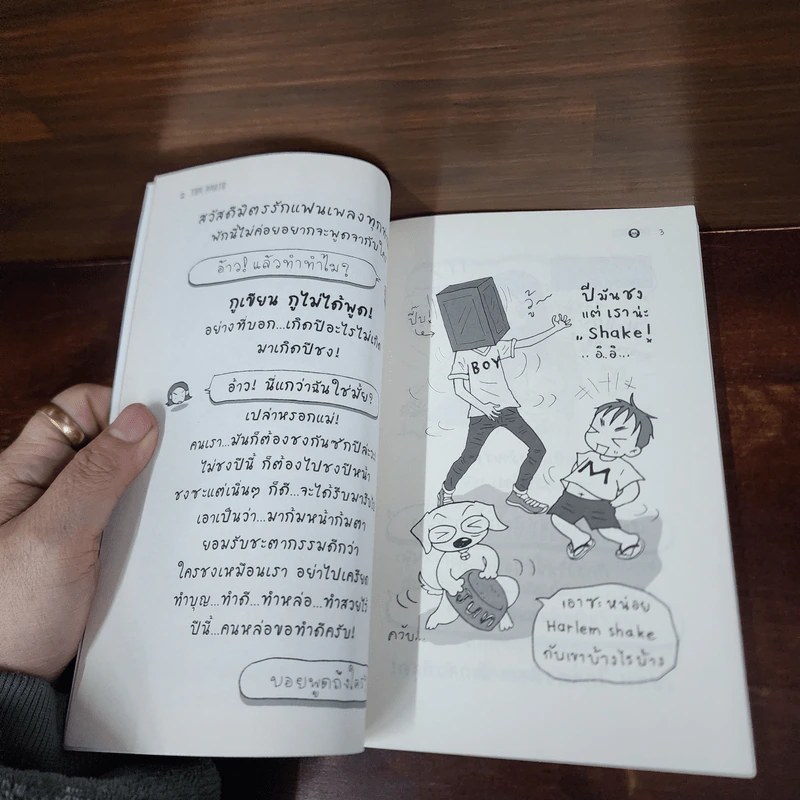 สวัสดีมิตรรักแฟนเพลงทุก
พักนี้ไม่ค่อยอยากจะพูดจากับใคร
อ้าว! แล้วทำทำไม?
กูเขียน กูไม่ได้พูด!
อย่างที่บอก...เกิดปีอะไรไม่เกิด
มาเกิดปีชง!
อ้าว! นี่แกว่าฉันใช่มั้ย?
เปล่าหรอกแม่!
คนเรา...มันก็ต้องชงกันซักปีล่ะ
ไม่ชงปีนี้ ก็ต้องไปชงปีหน้า
ชงซะแต่เนิ่นๆ ก็ดี...จะได้รีบมา
เอาเป็นว่า...มาก้มหน้าก้มตา
ยอมรับชะตากรรมดีกว่า
ใครชงเหมือนเรา อย่าไปเครียด
ทำบุญ...ทำดี...ทำหล่อ...ทำสวยไว้
ปีนี้...คนหล่อขอทำดีครับ!
บอยพูดถึงใคร
3
ปีมันชง
แต่เราน่ะ
"Shake!"
..อิ..อิ...
ปี๊บ!
วู้~
BOY
M
ควับ...
เอาซะหน่อย
Harlem shake
กับเขาบ้างไรบ้าง